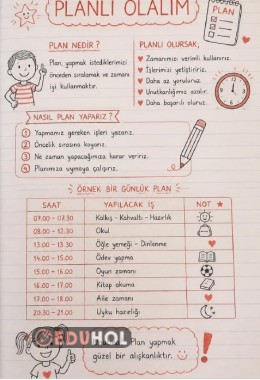 PLANLI OLALIM
PLAN
PLAN NEDİR ?
Plan, yapmak istediklerimizi
önceden sıralamak ve zamanı
iyi kullanmaktır.
PLANLI OLURSAK;
Zamanımızı verimli kullanırız.
İşlerimizi yetiştiririz.
Daha az yoruluruz.
Unutkanlığımız azalır.
Daha başarılı oluruz.
NASIL PLAN YAPARIZ ?
1 Yapmamız gereken işleri yazarız.
2 Öncelik sırasına koyarız.
3 Ne zaman yapacağımıza karar veririz.
4 Planımıza uymaya çalışırız.
ÖRNEK BİR GÜNLÜK PLAN
SAAT YAPILACAK İŞ NOT ★
07.00 - 07.30 Kalkış - Kahvaltı - Hazırlık
08.00 - 12.30 Okul
13.00 - 13.30 Öğle yemeği - Dinlenme
14.00 - 15.00 Ödev yapma
15.00 - 16.00 Oyun zamanı
16.00 - 17.00 Kitap okuma
17.00 - 18.00 Aile zamanı
20.30 - 21.00 Uyku hazırlığı
EDUHOL
Plan yapmak
güzel bir alışkanlıktır.
!